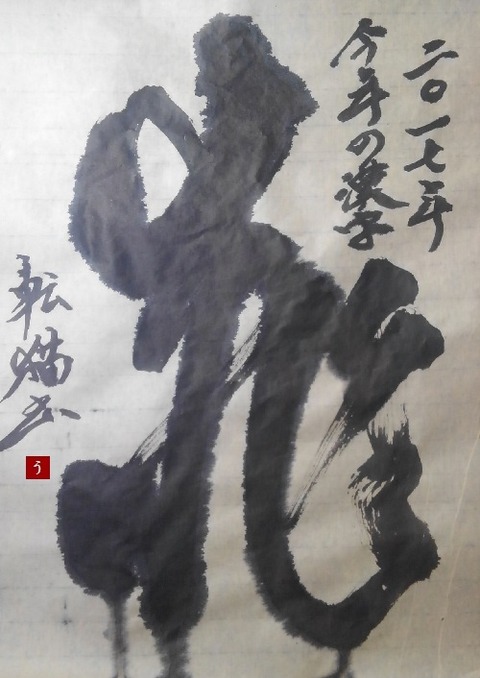 二〇一七年
今年の漢字
転猫書
う